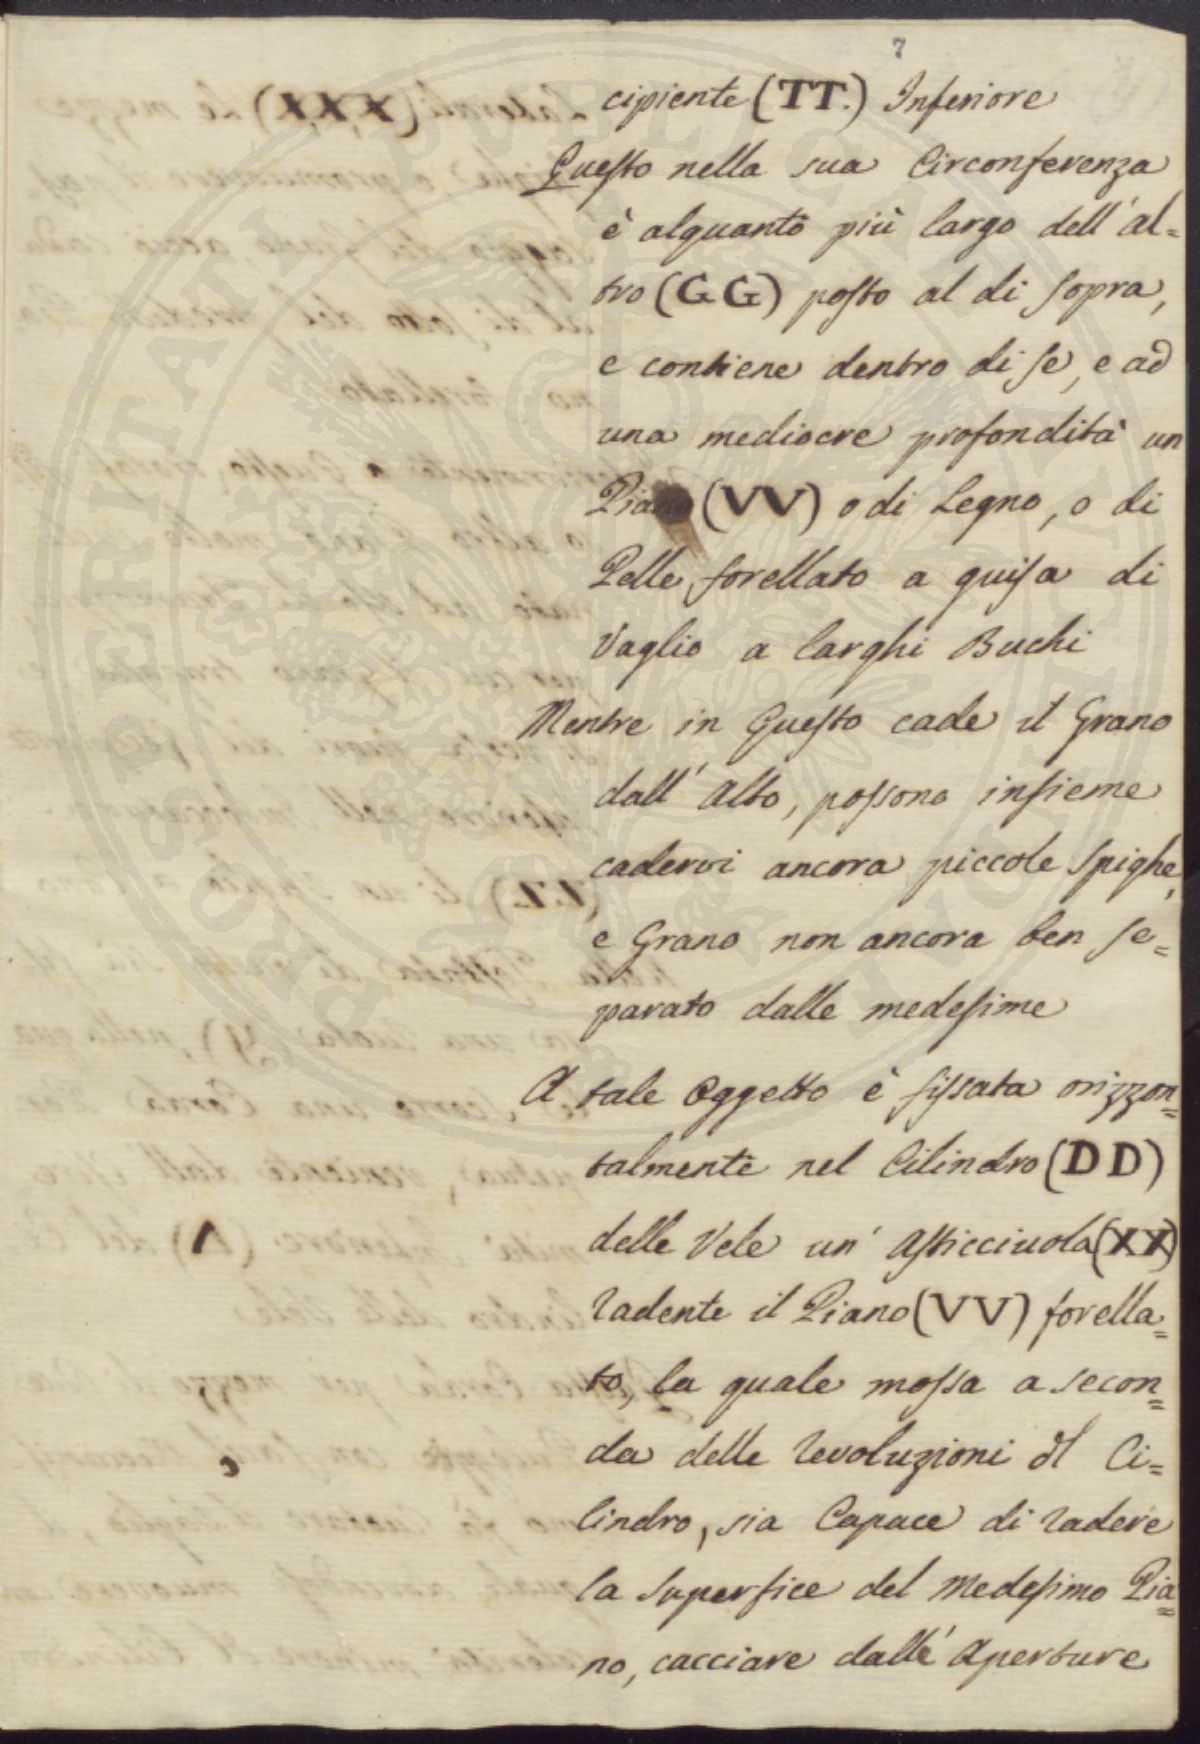 7
cipiente (TT.) Inferiore
Questo nella sua Circonferenza
è alquanto più largo dell'al=
tro (GG) posto al di sopra,
e contiene dentro di se, e ad
una mediocre profondità un
Piano (VV) o di Legno, o di
Pelle, forellato a guisa di
Vaglio a larghi Buchi
Mentre in Questo cade il Grano
dall'Alto, possono insieme
cadervi ancora piccole Spighe,
e Grano non ancora ben se=
parato dalle medesime
A tale Oggetto è fissata orizzon=
talmente nel Cilindro (DD)
delle Vele un' Asticciuola (XX)
radente il Piano (VV) forella=
to, la quale mossa a secon=
da delle revoluzioni dl Ci=
lindro, sia Capace di radere
la Superfice del Medesimo Pia=
no, cacciare dalle' Aperture